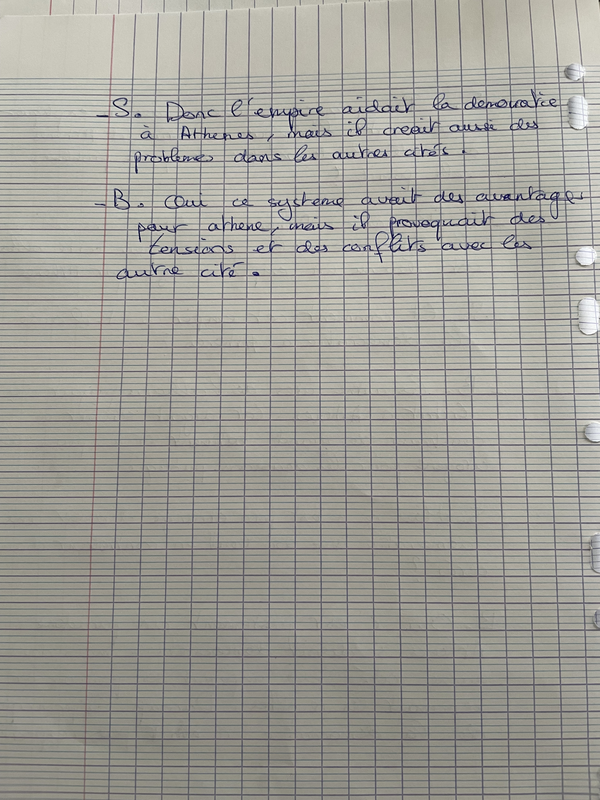 - S. Donc l'empire aidait la democratie
à Athenes, mais il creait aussi des
problemes dans les autres cités.
- B. Oui ce systeme avait des avantages
pour athene, mais il provoquait des
tensions et des conflits avec les
autre cité.